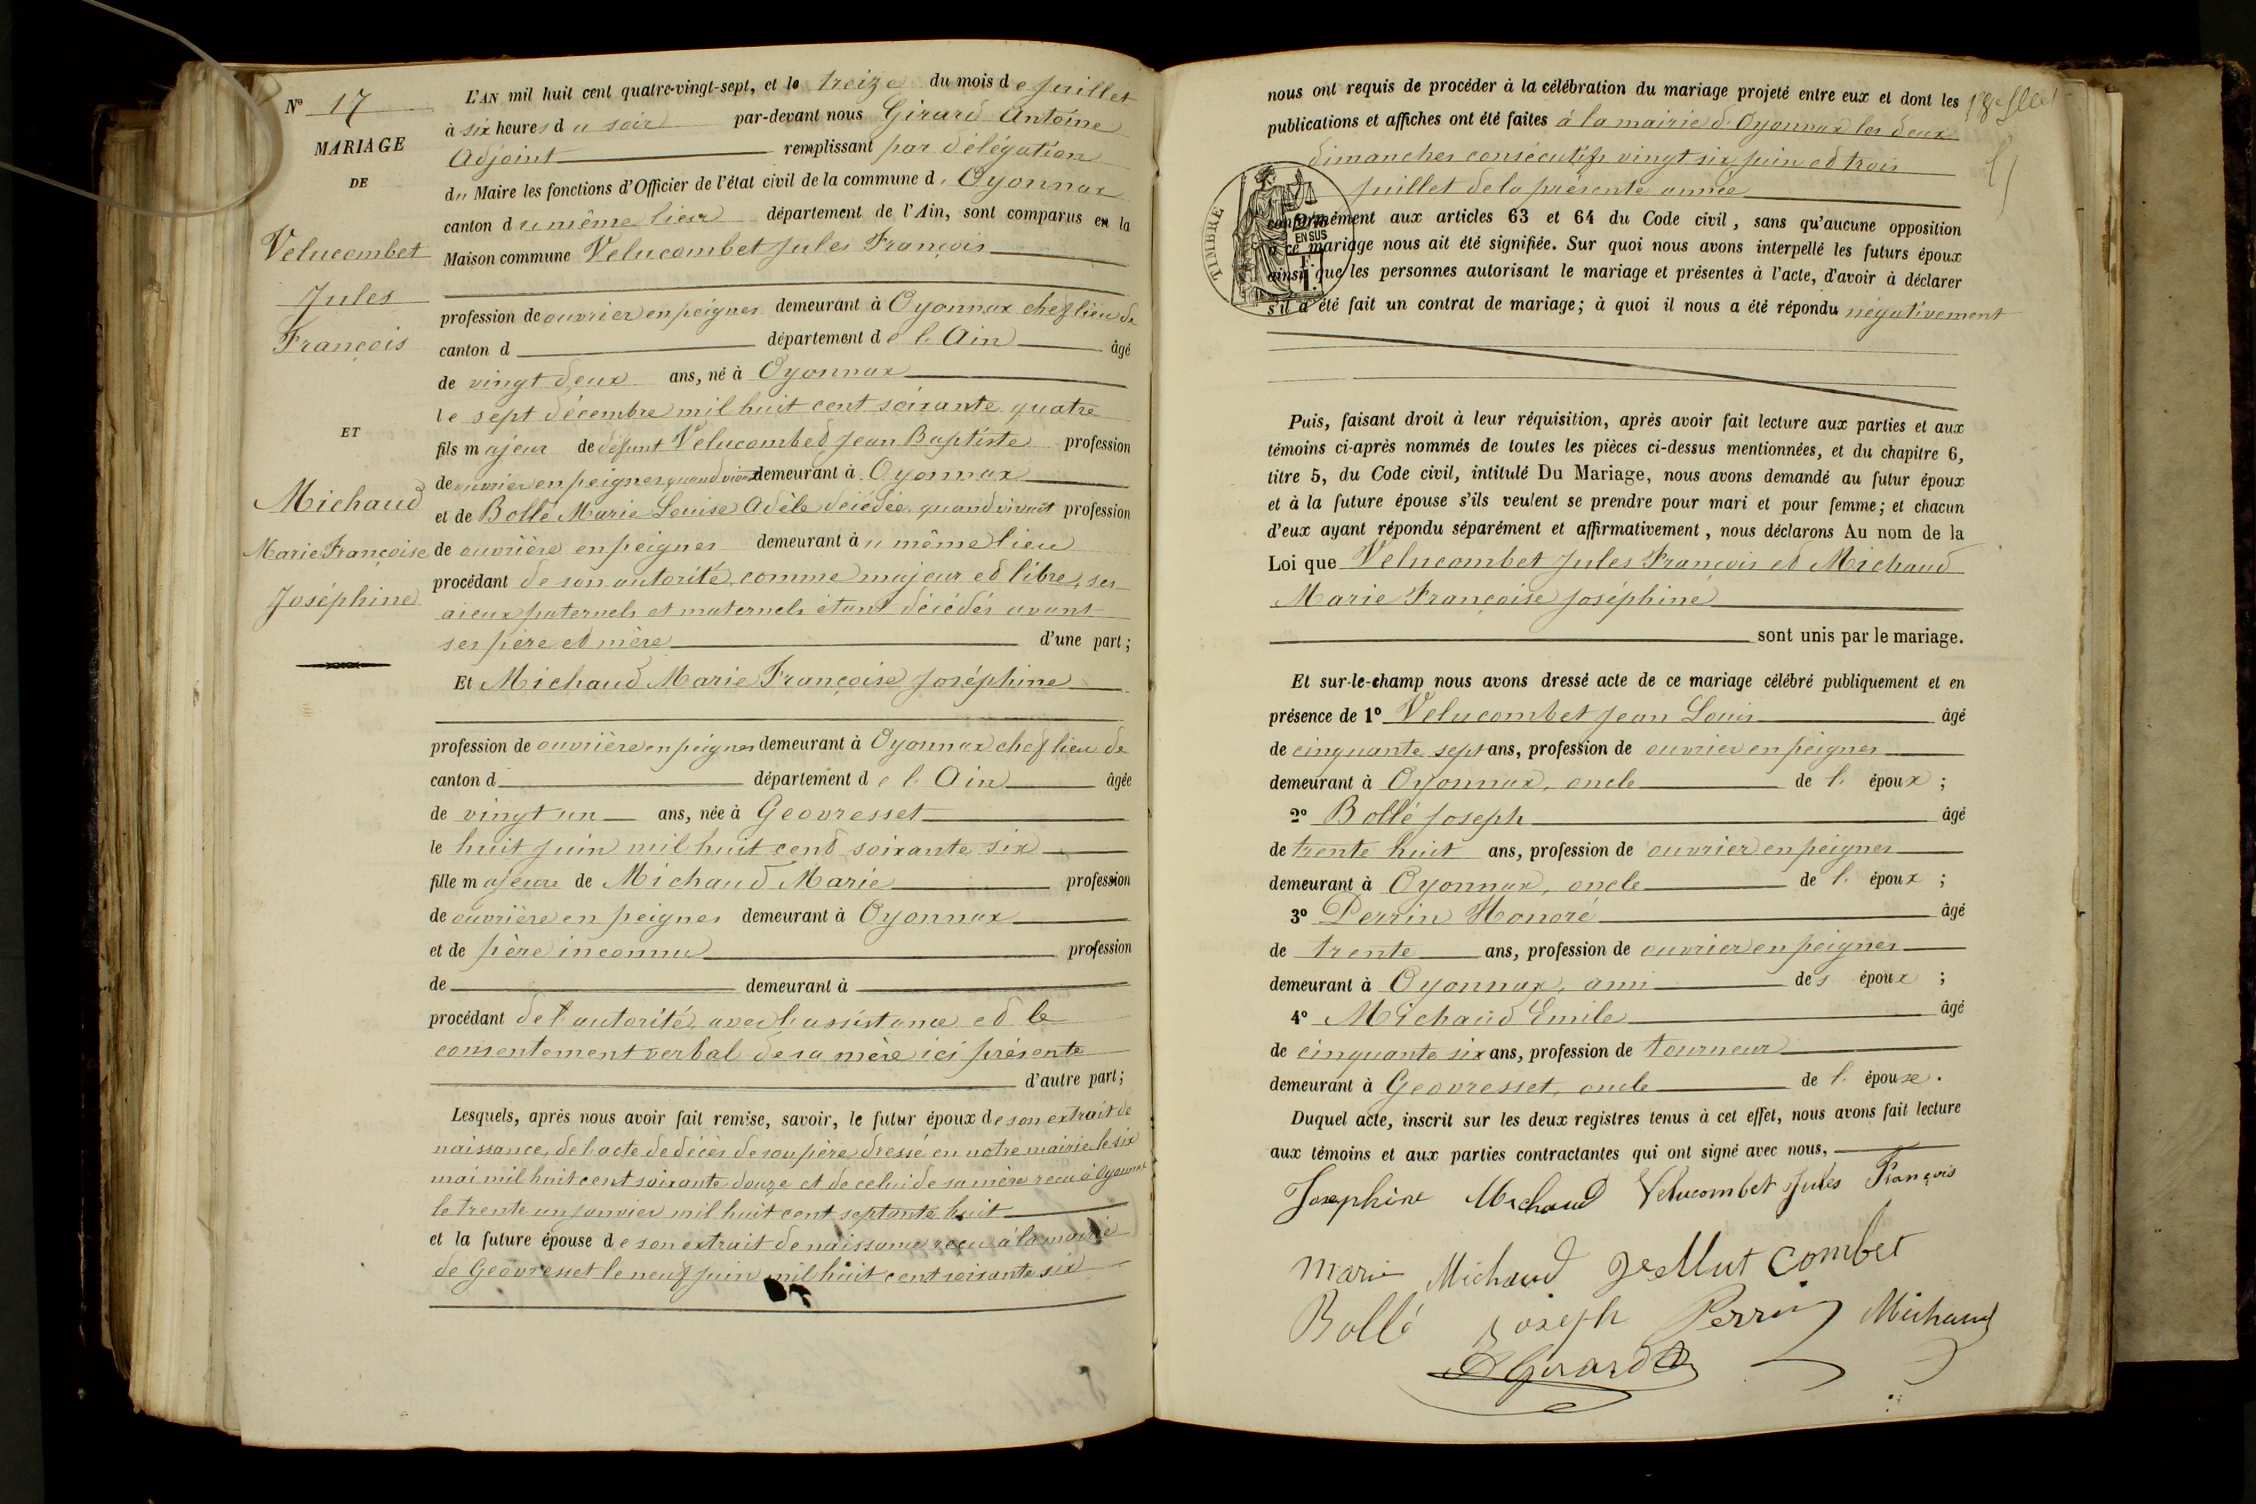 N° 17
MARIAGE
DE
Velucombet
Jules
François
ET
Michaud
Marie Françoise
Joséphine
L'AN mil huit cent quatre-vingt-sept, et le treize du mois de Juillet
à six heures du soir par-devant nous Girard Antoine
Adjoint remplissant par délégation
du Maire les fonctions d'Officier de l'état civil de la commune d'Oyonnax
canton du même lieu département de l'Ain, sont comparus en la
Maison commune Velucombet Jules François
profession de ouvrier en peignes demeurant à Oyonnax chef lieu de
canton d département de l'Ain âgé
de vingt deux ans, né à Oyonnax
le sept décembre mil huit cent soixante quatre
fils majeur de défunt Velucombet Jean Baptiste profession
de ouvrier en peignes quand vivait demeurant à Oyonnax
et de Bollé Marie Louise Adèle décédée, quand vivait profession
de ouvrière en peignes demeurant au même lieu
procédant de son autorité, comme majeur et libre, ses
aieux paternels et maternels étant décédés avant
ses père et mère d'une part;
Et Michaud Marie Françoise Joséphine
profession de ouvrière en peignes demeurant à Oyonnax chef lieu de
canton d département de l'Ain âgée
de vingt un ans, née à Geovresset
le huit Juin mil huit cent soixante six
fille majeure de Michaud Marie profession
de ouvrière en peignes demeurant à Oyonnax
et de père inconnu profession
de demeurant à
procédant de l'autorité, avec l'assistance et le
consentement verbal de sa mère ici présente
d'autre part;
Lesquels, après nous avoir fait remise, savoir, le futur époux de son extrait de
naissance, de l'acte de décès de son père dressé en notre mairie le six
mai mil huit cent soixante douze et de celui de sa mère reçu à Oyonnax
le trente un janvier mil huit cent septante huit
et la future épouse de son extrait de naissance reçu à la mairie
de Geovresset le neuf juin mil huit cent soixante six
nous ont requis de procéder à la célébration du mariage projeté entre eux et dont les
publications et affiches ont été faites à la mairie d'Oyonnax les deux
dimanches consécutifs vingt six juin et trois
juillet de la présente année
TIMBRE
EN SUS
conformément aux articles 63 et 64 du Code civil, sans qu'aucune opposition
à ce mariage nous ait été signifiée. Sur quoi nous avons interpellé les futurs époux
ainsi que les personnes autorisant le mariage et présentes à l'acte, d'avoir à déclarer
s'il a été fait un contrat de mariage; à quoi il nous a été répondu négativement
Puis, faisant droit à leur réquisition, après avoir fait lecture aux parties et aux
témoins ci-après nommés de toutes les pièces ci-dessus mentionnées, et du chapitre 6,
titre 5, du Code civil, intitulé Du Mariage, nous avons demandé au futur époux
et à la future épouse s'ils veulent se prendre pour mari et pour femme; et chacun
d'eux ayant répondu séparément et affirmativement, nous déclarons Au nom de la
Loi que Velucombet Jules François et Michaud
Marie Françoise Joséphine
sont unis par le mariage.
Et sur-le-champ nous avons dressé acte de ce mariage célébré publiquement et en
présence de 1° Velucombet Jean Louis âgé
de cinquante sept ans, profession de ouvrier en peignes
demeurant à Oyonnax, oncle de l'époux;
2° Bollé Joseph âgé
de trente huit ans, profession de ouvrier en peignes
demeurant à Oyonnax, oncle de l'époux;
3° Perrin Honoré âgé
de trente ans, profession de ouvrier en peignes
demeurant à Oyonnax, ami des époux;
4° Michaud Emile âgé
de cinquante six ans, profession de tourneur
demeurant à Geovresset, oncle de l'épouse.
Duquel acte, inscrit sur les deux registres tenus à cet effet, nous avons fait lecture
aux témoins et aux parties contractantes qui ont signé avec nous,
Josephine Michaud Velucombet Jules François
Marie Michaud Combet
Bollé Joseph Perrin Michaud
A Girard